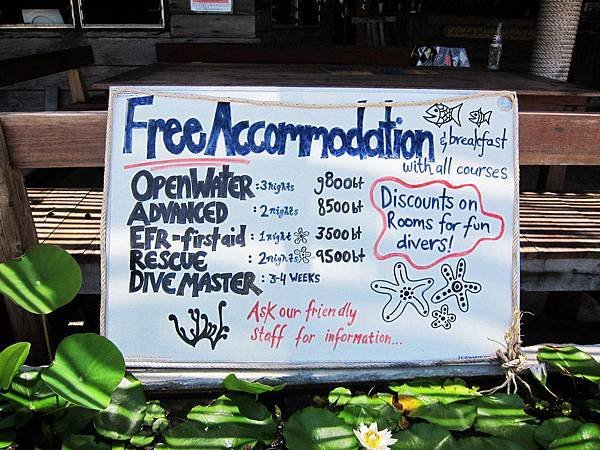 Free Accommodation
& breakfast
with all courses
OPEN WATER : 3 nights 9800bt
ADVANCED : 2 nights 8500bt
EFR - first aid : 1 night 3500bt
RESCUE : 2 nights 9500bt
DIVE MASTER : 3-4 WEEKS
Discounts on
Rooms for fun
divers!
Ask our friendly
Staff for information...